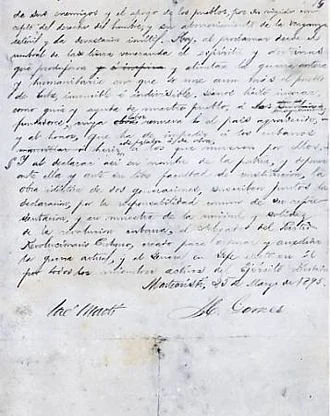 de sus enemigos y el apoyo de los pueblos, por su rígido con-
cepto del derecho del hombre, y su aborrecimiento de la venganza
estéril y la devastación inútil. Hoy, al proclamar desde el
umbral de la tierra veneranda el espíritu y doctrinas
que produjeron y alientan la guerra entera
y humanitaria en que se une aun más el pueblo
de Cuba, invencible é indivisible, séanos lícito invocar,
como guía y ayuda de nuestro pueblo, á los
fundadores, cuya labor renueva el país agradecido,
y al honor, que ha de impedir á los cubanos
herir, de palabra ó de obra, á los que mueren por ellos.
Y al declarar así en nombre de la patria, y deponer
ante ella y ante su libre facultad de constitución, la
obra idéntica de dos generaciones, suscriben juntos la
declaración, por la responsabilidad común de su repre-
sentación, y en muestra de la unidad y solidez
de la revolución cubana, el Delegado del Partido
Revolucionario Cubano, creado para ordenar y auxiliar
la guerra actual, y el General en Jefe electo en él
por todos los miembros activos del Ejército Libertador.
Montecristi, 25 de Marzo de 1895.
José Martí M. Gomez